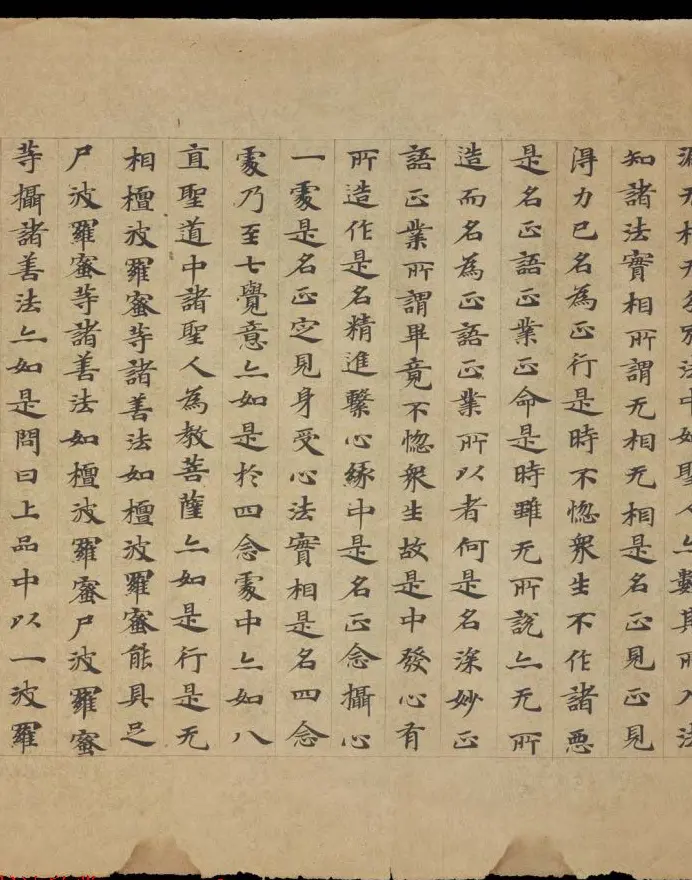 漏无相无分別法中如聖人亦數其所入法
知諸法實相所謂无相无相是名正見正見
得力已名為正行是時不惚衆生不作諸惡
是名正語正業正命是時雖无所說亦无所
造而名為正語正業所以者何是名深妙正
語正業所謂畢竟不惚衆生故是中發心有
所造作是名精進繫心緣中是名正念攝心
一處是名正定見身受心法實相是名四念
處乃至七覺意亦如是於四念處中亦如八
直聖道中諸聖人為教菩薩亦如是行是无
相檀波羅蜜等諸善法如檀波羅蜜能具足
尸波羅蜜等諸善法如檀波羅蜜尸波羅蜜
等攝諸善法亦如是問曰上品中以一波羅